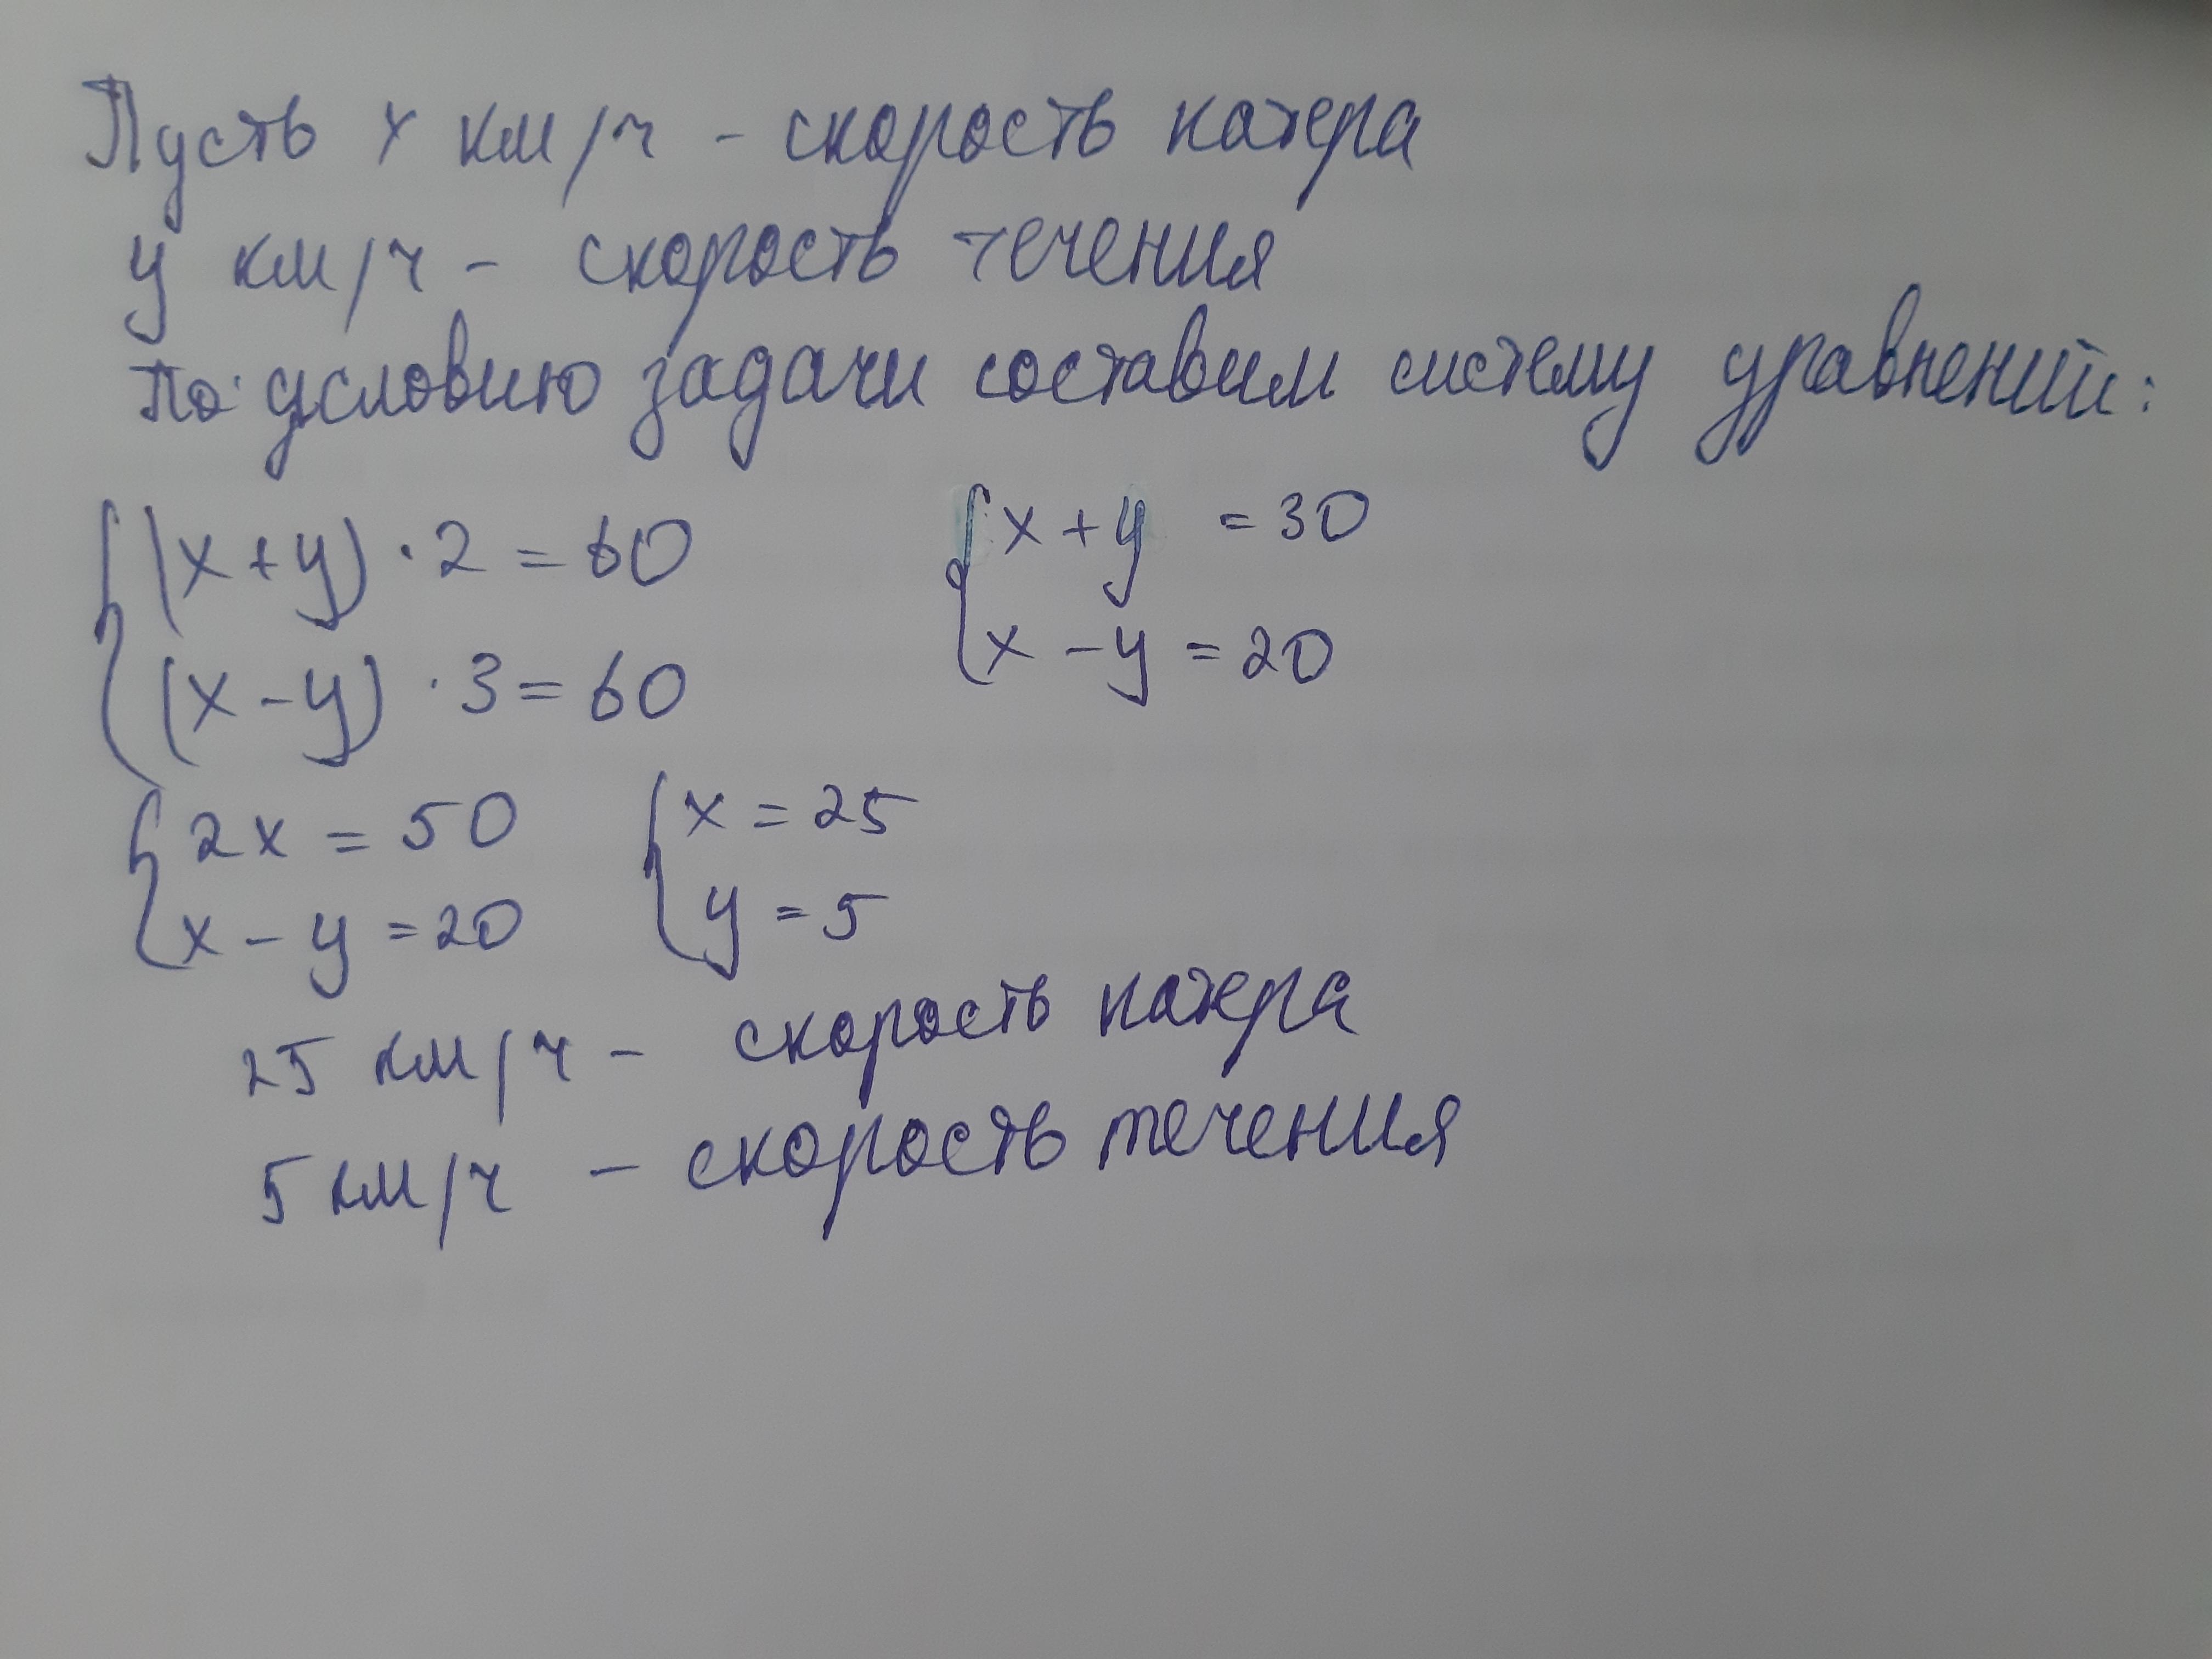 Пусть x км/ч - скорость катера
y км/ч - скорость течения
по условию задачи составим систему уравнений:
(x+y)·2=60 x+y=30
(x-y)·3=60 x-y=20
2x=50 x=25
x-y=20 y=5
25 км/ч - скорость катера
5 км/ч - скорость течения